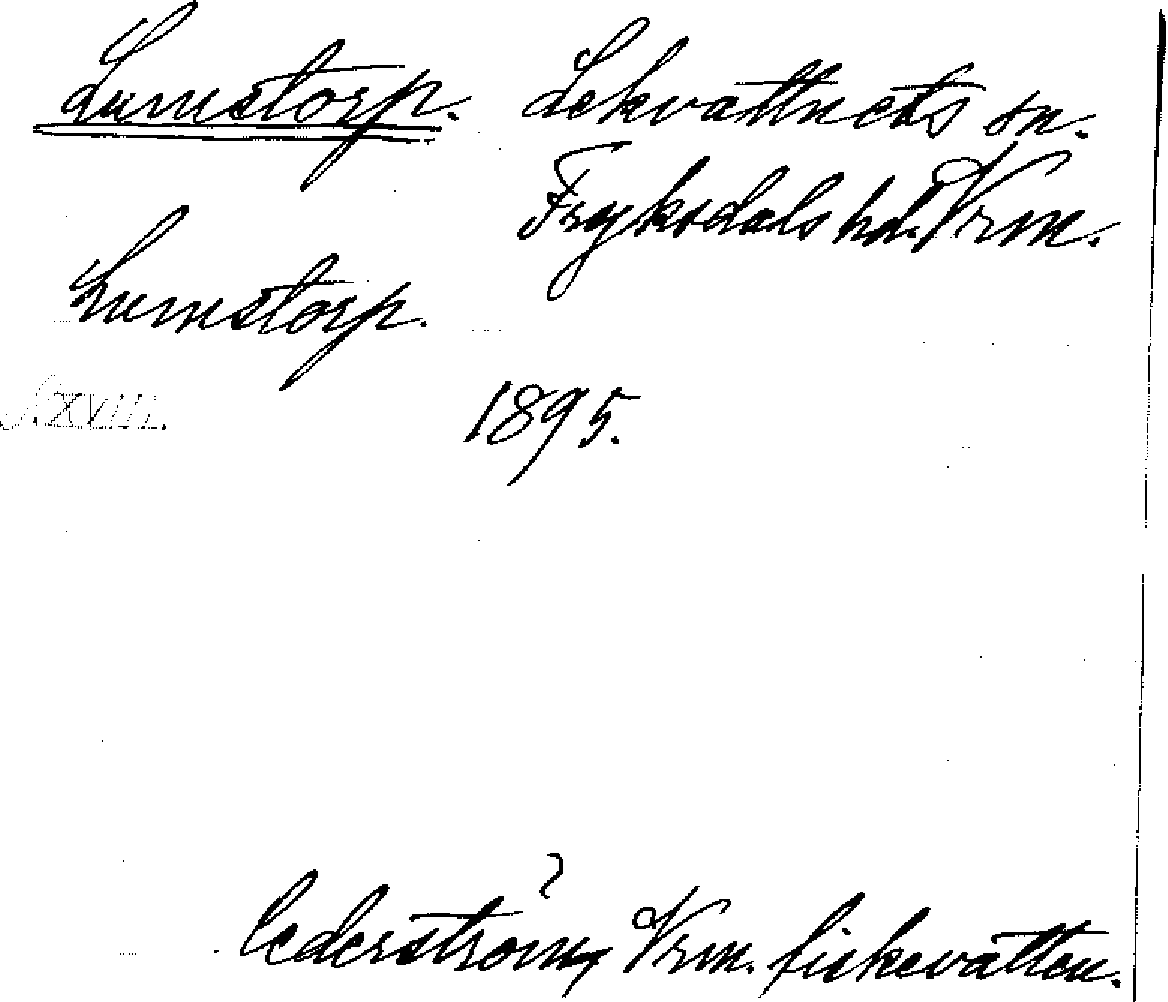 Lumstorp. Lekvattnets sn.
Fryksdals hd. Vrm.
Lumstorp.
S. XVIII. 1895.
Cederström, Vrm. fiskevatten.